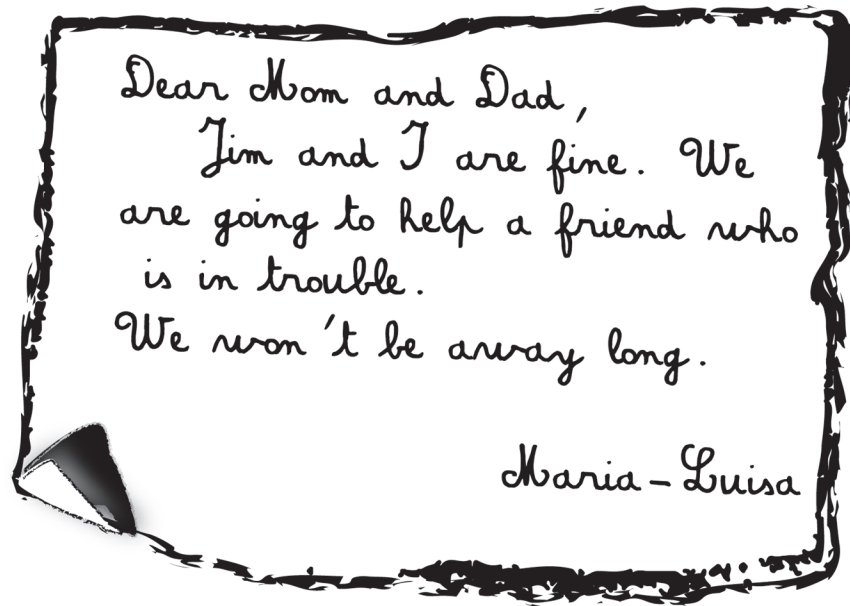 Dear Mom and Dad,
Jim and I are fine. We
are going to help a friend who
is in trouble.
We won't be away long.
Maria-Luisa